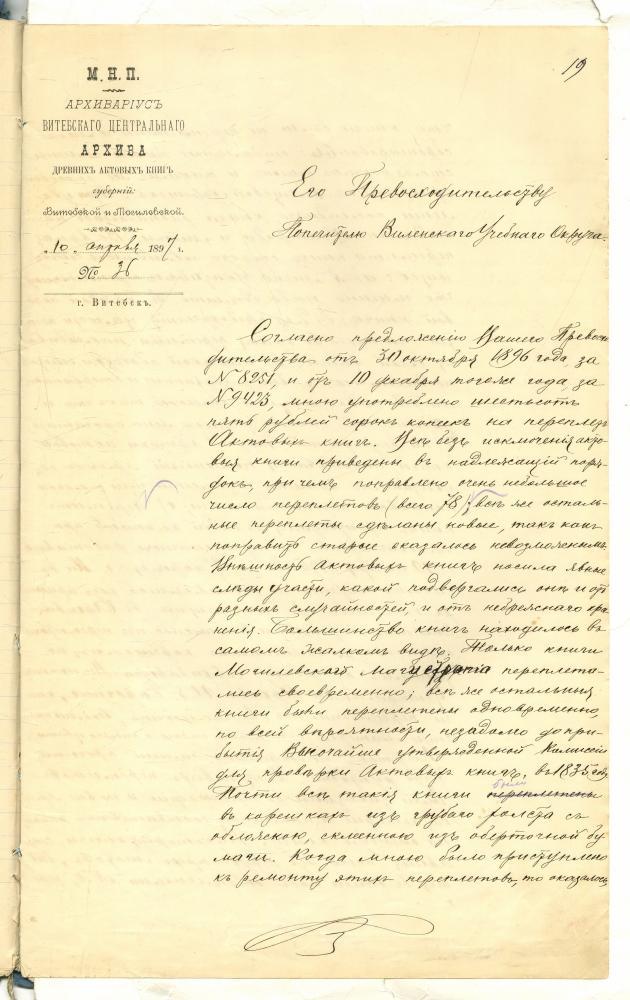 19
М. Н. П.
АРХИВАРІУСЪ
ВИТЕБСКАГО ЦЕНТРАЛЬНАГО
АРХИВА
ДРЕВНИХЪ АКТОВЫХЪ КНИГЪ
губерній:
Витебской и Могилевской.
„10„ апрѣля 1897 г.
№ 36
г. Витебскъ.
Его Превосходительству
Попечителю Виленскаго Учебнаго Округа.
Согласно предложенію Вашего Превосхо
дительства отъ 30 октября 1896 года, за
№ 8251, и отъ 10 декабря того же года, за
№ 9423, мною употреблено шестьсотъ
пять рублей сорокъ копѣекъ на переплетъ
Актовыхъ книгъ. Всѣ безъ исключенія акто
выя книги приведены въ надлежащій поря
докъ, при чемъ поправлено очень небольшое
число переплетовъ (всего 78); всѣ же осталь
ные переплеты сдѣланы новые, такъ какъ
поправить старые оказалось невозможнымъ.
Внѣшность Актовыхъ книгъ носила явные
слѣды участи, какой подвергались онѣ и отъ
разныхъ случайностей, и отъ небрежнаго хра
ненія. Большинство книгъ находилось въ
самомъ жалкомъ видѣ. Только книги
Могилевскаго магистрата переплета
лись своевременно; всѣ же остальныя
книги были переплетены одновременно,
по всей вѣроятности, незадолго до при
бытія Высочайше утвержденной Комиссіи
для провѣрки Актовыхъ книгъ, въ 1835 году.
были
Почти всѣ такія книги переплетены
въ корешкахъ изъ грубаго холста съ
обложкою, склеенною изъ оберточной бу
маги. Когда мною было приступлено
къ ремонту этихъ переплетовъ, то оказалось,